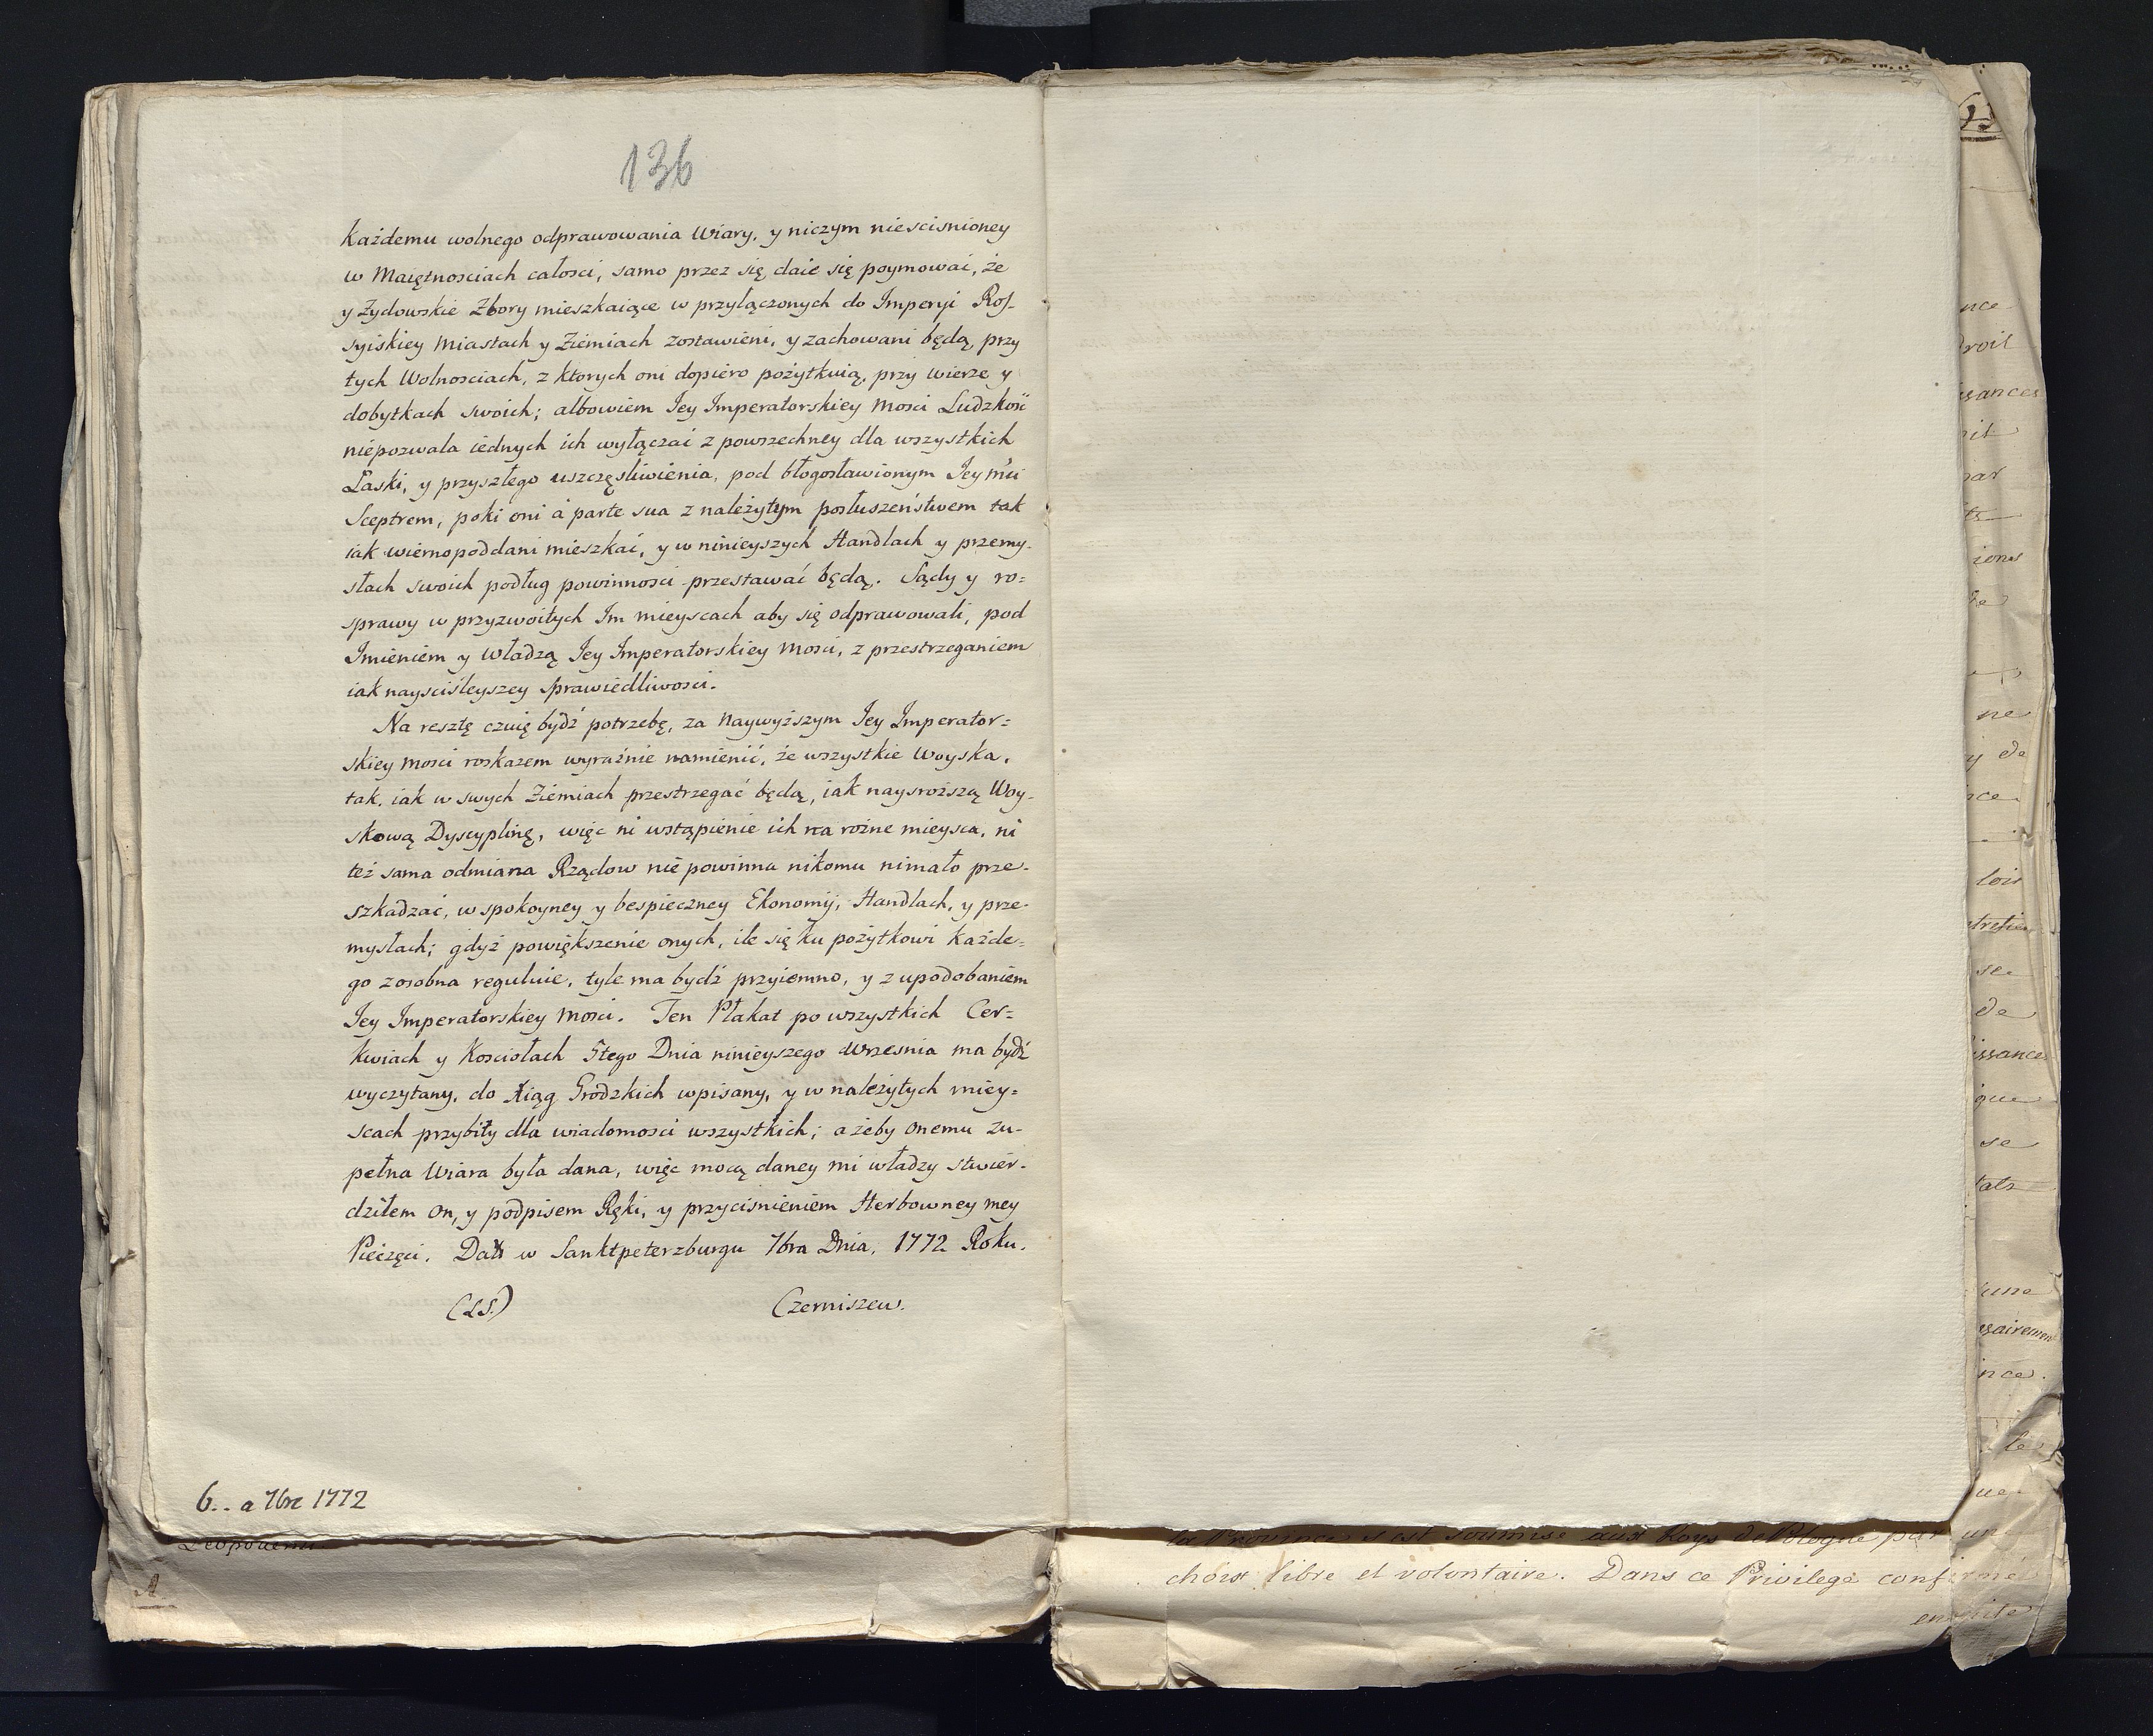 136
Każdemu wolnego odprawowania Wiary, y niczym niescisnioney
w Maiętnosciach całosci, samo przez się daie się poymowai, że
y Zydowskie Zbory mieszkaiące w przyłączonych do Imperyi Ros-
syiskiey Miastach y Ziemiach zostawieni, y zachowani będą przy
tych Wolnosciach, z ktorych oni dopiero pożytkuią, przy wierze y
dobytkach swoich; albowiem Jey Imperatorskiey Mosci Ludzkość
niepozwala iednych ich wyłączai z powszechney dla wszystkich
Łaski, y przyszłego uszczęsliwienia, pod błogosławionym Jey Mci
Sceptrem, poki oni à parte sua z należytym posłuszeństwem tak
iak wiernopoddani mieszkać, y w ninieyszych Handlach y przemy-
słach swoich podług powinnosci przestawać będą. Sądy y ro=
sprawy w przyzwoitych Im mieyscach aby się odprawowali, pod
Imieniem y Władzą Jey Imperatorskiey Mosci, z przestrzeganiem
iak naysciśleyszey sprawiedliwosci.
Na resztę czuię bydź potrzebę, za Naywyższym Jey Imperator=
skiey Mosci roskazem wyraźnie namienić, że wszystkie Woyska,
tak, iak w swych Ziemiach przestrzegać będą, iak naysroższą Woy-
skową Dyscyplinę, więc ni wstąpienie ich na rożne mieysca, ni
też sama odmiana Rządow nie powinna nikomu nimało prze-
szkadzać, w spokoyney y bespieczney Ekonomij, Handlach, y prze-
mysłach; gdyż powiększenie onych, ile się ku pożytkowi każde=
go zosobna reguluie, tyle ma bydź przyiemno, y z upodobaniem
Jey Imperatorskiey Mosci. Ten Plakat po wszystkich Cer=
kwiach y Kosciołach 5tego Dnia ninieyszego Wrzesnia ma bydź
wyczytany, do Xiąg Grodzkich wpisany, y w należytych miey=
scach przybity dla wiadomosci wszystkich; a żeby onemu zu-
pełna Wiara była dana, więc mocą daney mi władzy stwier-
dziłem on, y podpisem Ręki, y przycisnieniem Herbowney mey
Pieczęci. Dat w Sanktpeterzburgu 7bra Dnia, 1772 Roku.
(LS.) Czerniszew.
6.. a 7bre 1772
A
nce
droit
ssances
par
ions
ne
y de
lois
se
de
issance
que
se
tats
une
ince.
la Province s'est soumise aux Roys de Pologne par un
choix libre et volontaire. Dans ce Privilege confirmé
ensuite